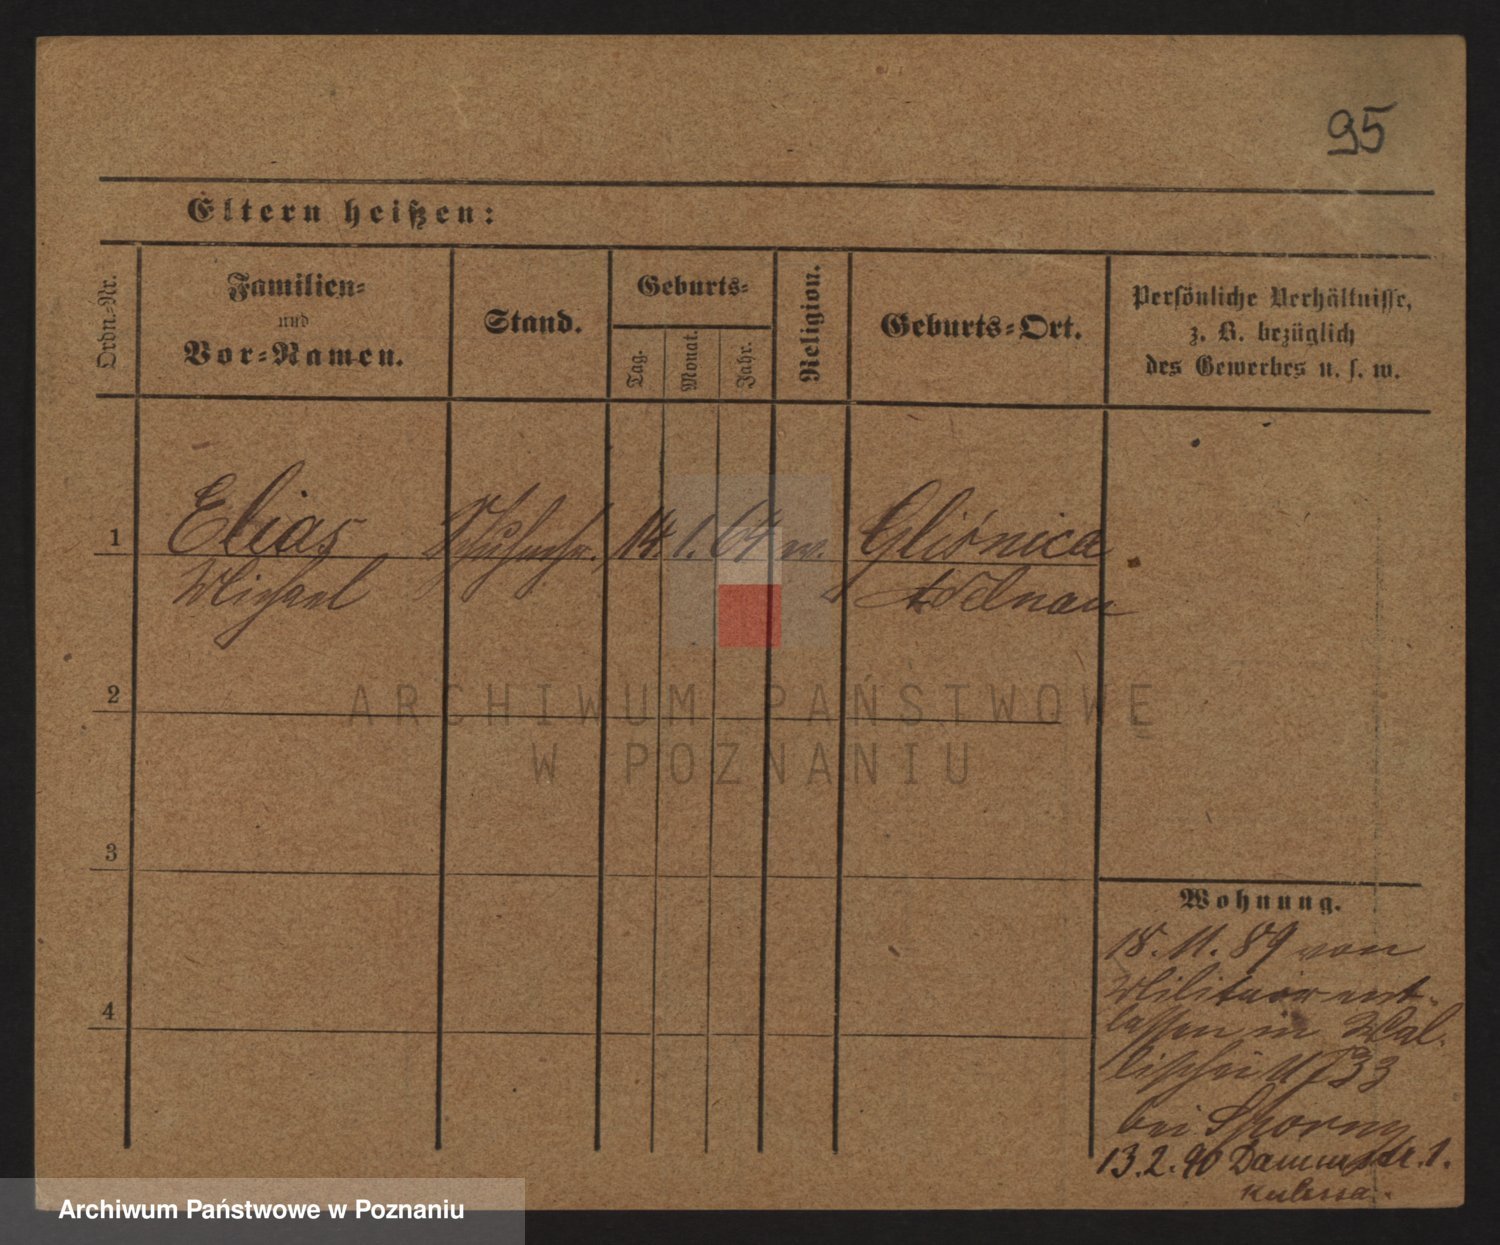 95
Eltern heißen:
Ordn.-Nr.
Familien-
und
Vor-Namen.
Stand.
Geburts-
Tag.
Monat.
Jahr.
Religion.
Geburts-Ort.
Persönliche Verhältnisse,
z. B. bezüglich
des Gewerbes u. s. w.
1
Elias
14. 1. 64
Gliśnica
Michael
Adelnau
2
ARCHIWUM PAŃSTWOWE
W POZNANIU
3
Wohnung.
18. 11. 89 von
Militair ent-
lassen in Wal-
lischei 33
bei
13. 2. 90 Dammstr. 1.
Archiwum Państwowe w Poznaniu
4